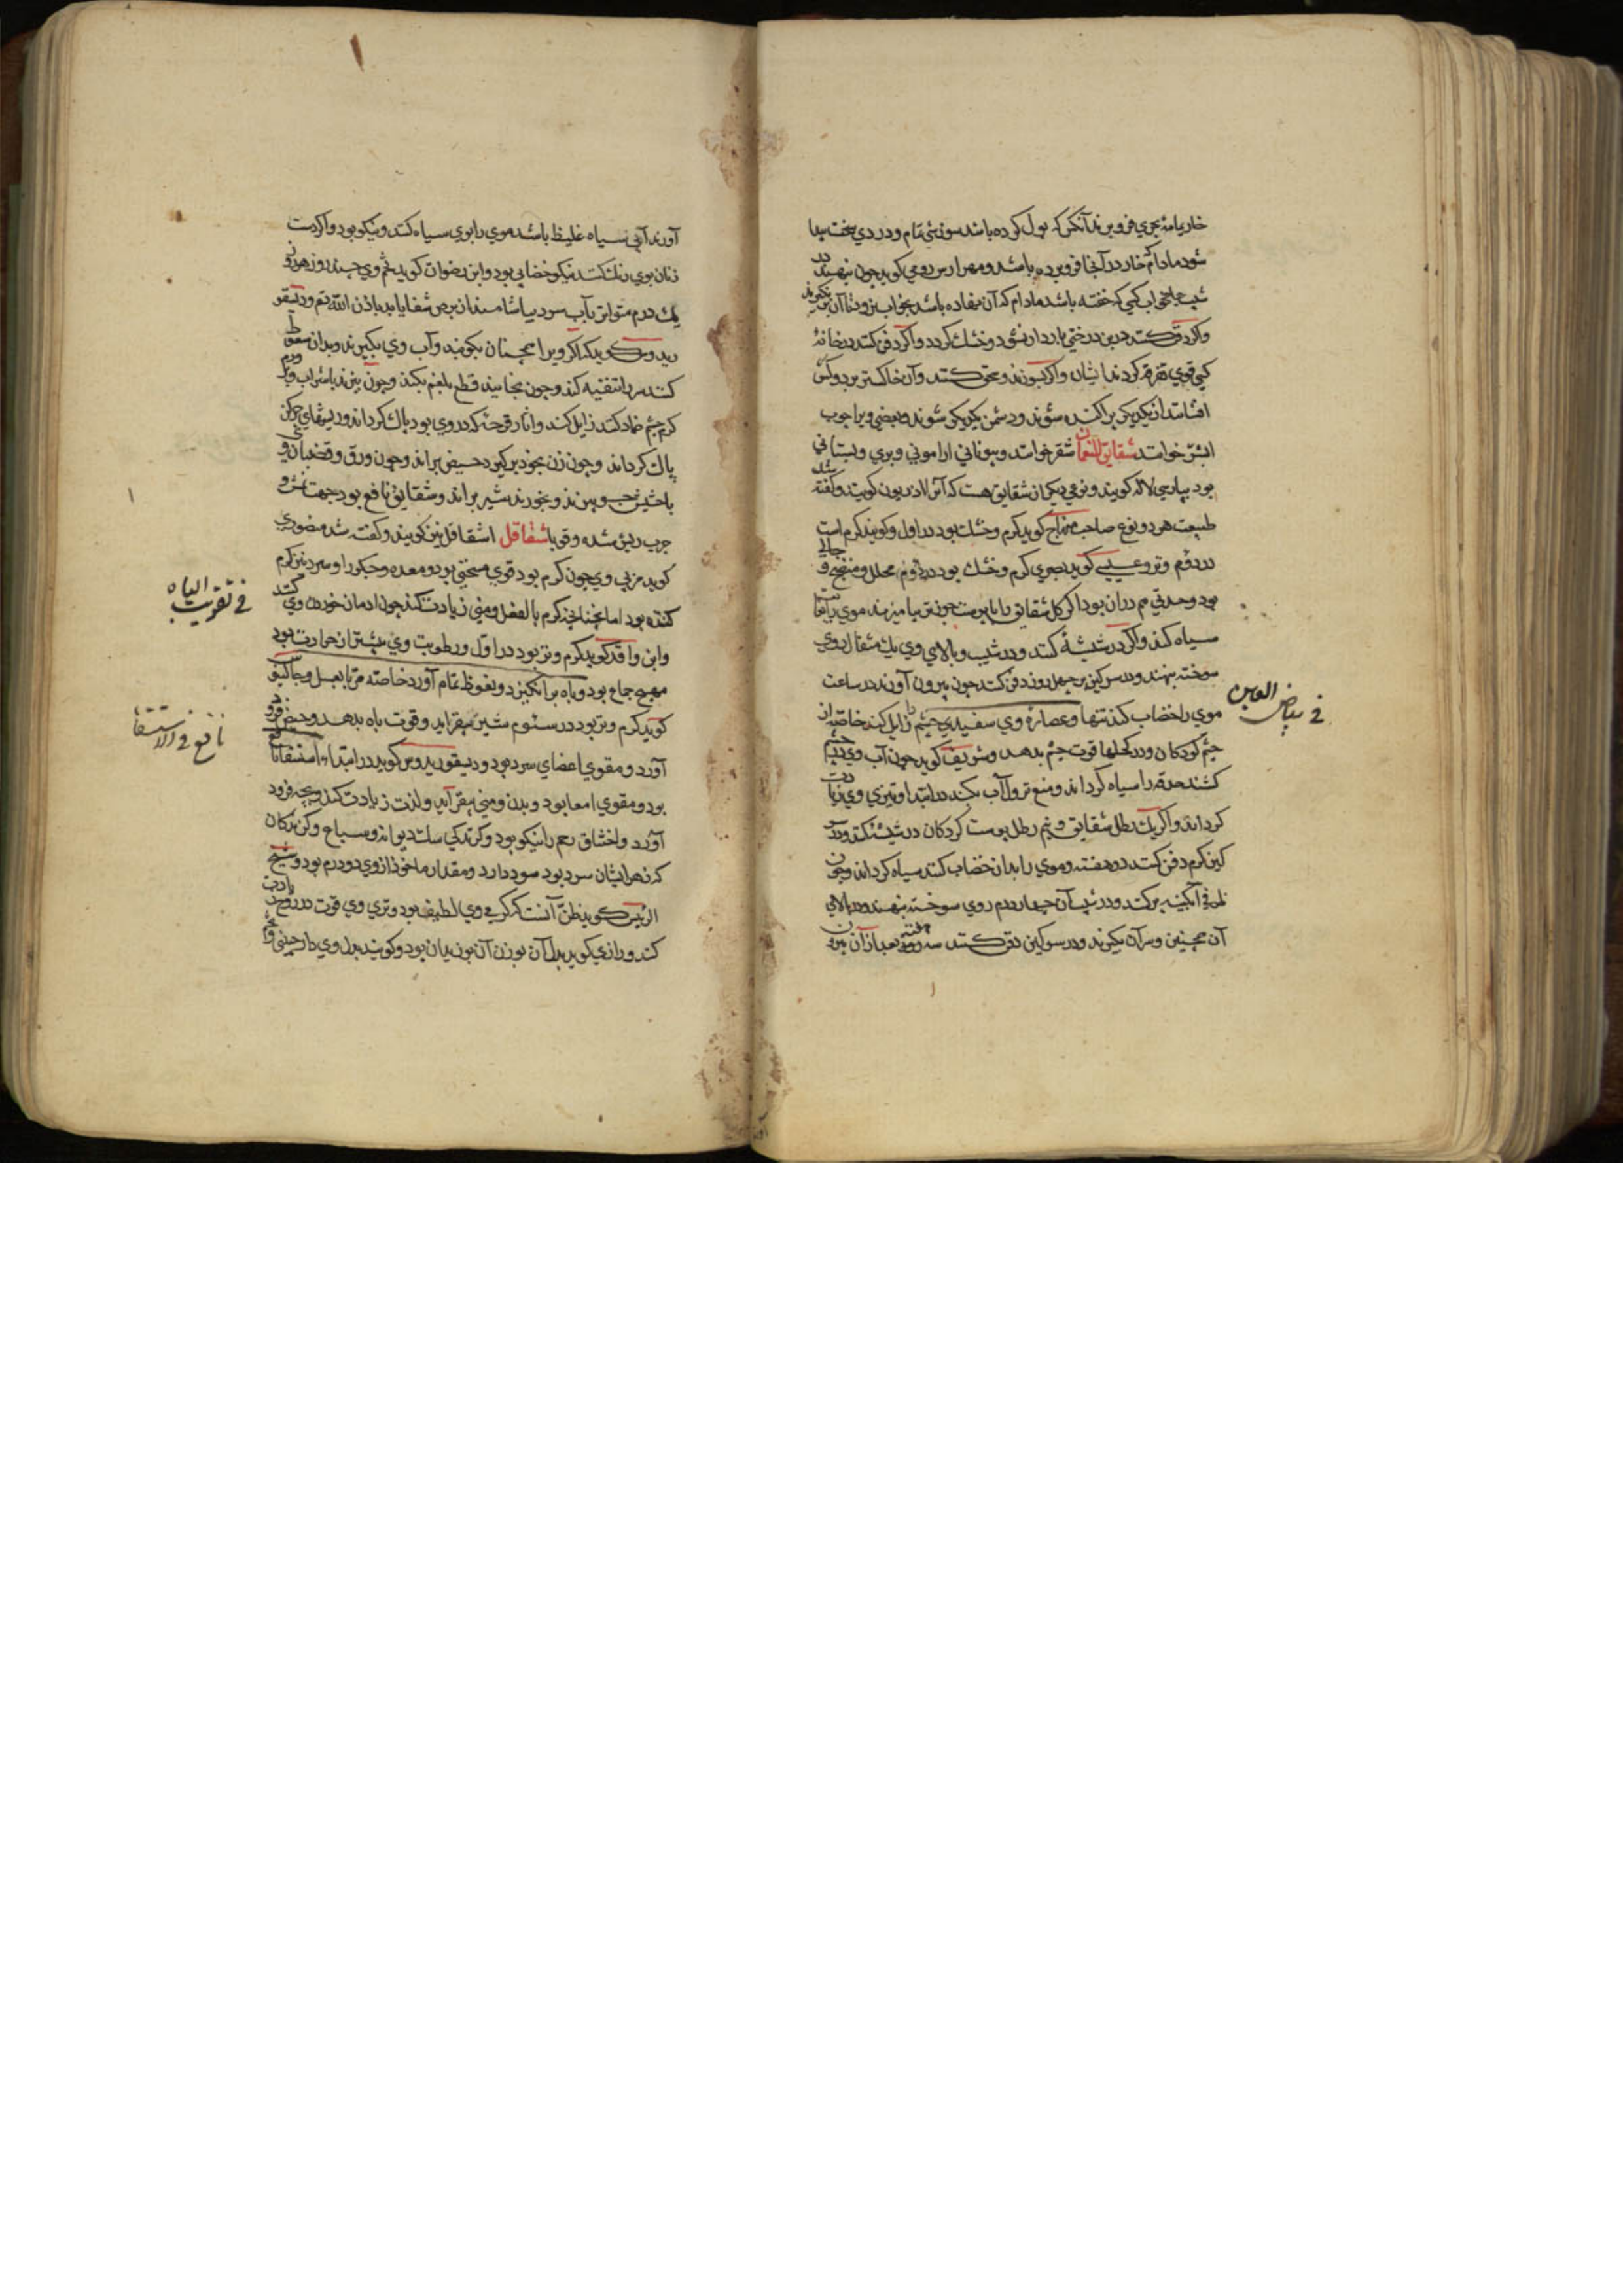 خار یا مد بجری فرو برند آنکس که بول کرده باشد سوزشی تمام و دردی سخت پیدا
شود مادام که خار در آنجا فرو برده باشد و مهرارس رومی کوید چون بنهند در
شیب جامه خواب کسی که خفته باشد مادام که آن نهاده باشد بخواب برود تا آن برنگیرند
و اگر دفن کنند در بن درختی باردار نشود و خشک گردد و اگر دفن کنند در خانهٔ
کسی قوی تفرقه گردند ایشان و اگر بسوزند و سحق کنند و آن خاکستر بر دو کس
افشانند از یکدیگر پراکنده شوند و دشمن یکدیگر شوند و بعضی ویرا چوب
اتش خوانند شقایق النعمان شقر خوانند و بیونانی ارامونی و بری و بستانی
بود بپارسی لاله کویند و نوعی دیکر از شقایق هست که آنرا اذریون کویند و کفته شد
طبیعت هر دو نوع صاحب منهاج کوید کرم و خشک بود در اول و کویند کرم است
در دوم و تر و عیسی کوید بصری کرم و خشک بود در دوم محلل و منضج و جالی
بود و حدتی هم در آن بود اکر کل شقایق را با پوست جوز تر بیامیزند موی را بغایت
سیاه کند و اکر در شیشهٔ کنند و در شیب و بالای وی یک مثقال روی
سوخته بنهند و در سرکین بز چهل روز دفن کنند چون بیرون آورند در ساعت
موی را خضاب کند تنها و عصارهٔ وی سفیدی چشم را زایل کند خاصه از
چشم کودکان و در کحلها قوت چشم بدهد و شریف کوید چون آب وی در چشم
کشند حدقه را سیاه کرداند و منع نزول آب بکند در ابتدا و تیزی وی زیادت
کرداند و اکر یک رطل شقایق و نیم رطل پوست کردکان در شیشه کنند و در سر
کین کرم دفن کنند دو هفته و موی را بدان خضاب کنند سیاه کرداند و چون
ظرفی آبکینه پر کنند و در شیب آن چهار درم روی سوخته بنهند و در بالای
آن همچنین و سر آن بکیرند و در سرکین دفن کنند سه هفته و بعد از آن بیرون
في بياض العين
آورند آبی سیاه غلیظ باشد موی را بوی سیاه کند و نیکو بود و اکر دست
زنان بوی رنک کنند نیکو خضابی بود و ابن رضوان کوید تخم وی چند روز هر روز
یک درم متواتر بآب سرد بیاشامند از برص شفا یابد باذن الله تم و دیسقو
ریدوس کوید که اکر ویرا همچنان بکوبند و آب وی بکیرند و بدان سعوط
کنند سر را تنقیه کند و چون بخایند قطع بلغم بکند و چون بپزند با شراب و بر ورم
کرم چشم ضماد کنند زایل کند و آثار قرحه که در وی بود پاک کرداند و ریشهای چرکن
پاک کرداند و چون زن بخود برکیرد حیض براند و چون ورق و قضبان وی
با حشیش جو بپزند و بخورند شیر براند و شقایق نافع بود جهت تقشر و
جرب ریش شده و قوبا شقاقل اشقاقل نیز کویند و کفته شد منصوری
کوید مربی وی چون کرم بود قوی مسخن بود و معده و جکر را و سردنیز کرم
کننده بود اما نه چنانچه کرم بالفعل و منی زیادت کند چون ادمان خوردن وی کنند
و ابن واقد کوید کرم و تر بود در اول و رطوبت وی بیشتر از حرارت بود
مهیج جماع بود و باه برانکیزد و نعوظ تمام آورد خاصه مربا بعسل و جالینوس
کوید کرم و تر بود در سئوم شیر بیفزاید و قوت باه بدهد و حیض فرو
آورد و مقوی اعضای سرد بود و دیسقوریدوس کوید در ابتداء استسقا نافع
بود و مقوی امعا بود و بدن و منی بیفزاید و لذت زیادت کند و بچه فرود
آورد و اختناق رحم را نیکو بود و کزندکی سک دیوانه و سباع و کزندکان
که زهر ایشان سرد بود سود دارد و مقدار ماخوذ از وی دو درم بود و شیخ
الرئیس کوید ظن آنست که کرمی وی لطیف بود و تری وی قوت در روح زیادت
کند و رازی کوید بدل آن بوزن آن بوزیدان بود و کویند بدل وی دارچینی و
في تقويت الباه
نافع في الاستسقا